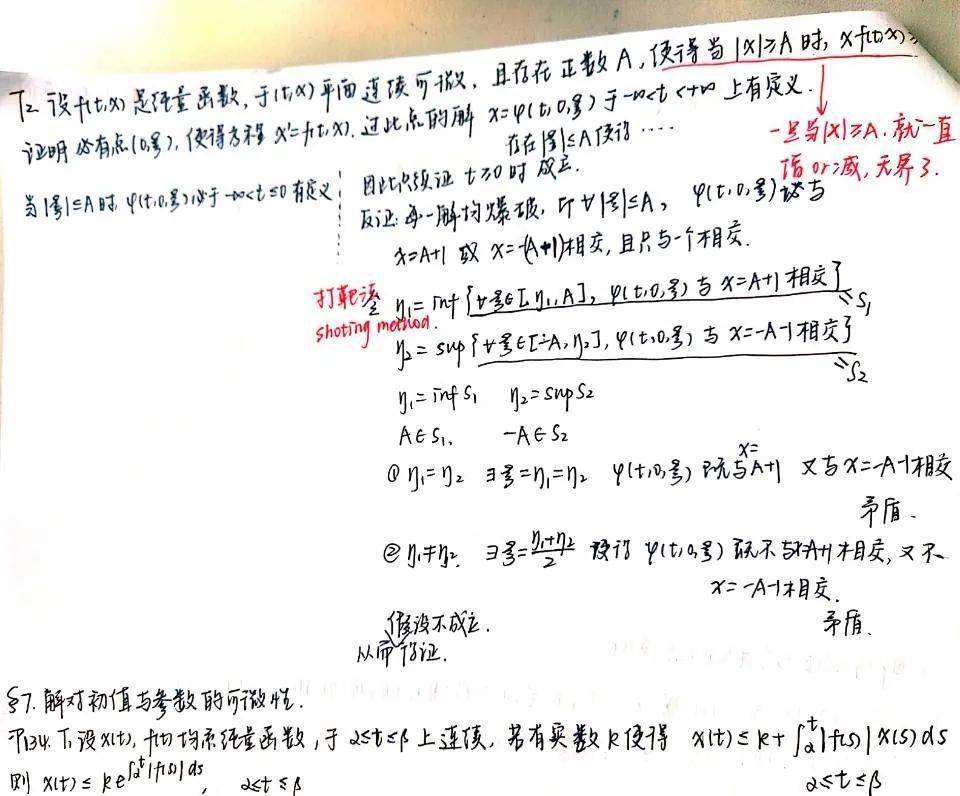 T2. 设f(t,x)是纯量函数,于(t,x)平面连续可微,且存在正数A,使得当|x|≥A时,xf(t,x)>
证明必有点(0,ξ),使得方程x'=f(t,x),过此点的解 x=φ(t,0,ξ)于-∞<t<+∞上有定义.
存在|ξ|≤A使得 ....
一旦当|x|≥A.就一直
增or减,无界了.
当|ξ|≤A时,φ(t,0,ξ)必于-∞<t≤0有定义
因此只须证 t≥0时成立.
反证:每一解均爆破,即∀|ξ|≤A, φ(t,0,ξ)必与
x=A+1 或 x=-(A+1)相交,且只与一个相交.
打靶法
shoting method.
令 η₁=inf{∀ξ∈[η₁,A],φ(t,0,ξ)与x=A+1相交} ≜S₁
η₂=sup{∀ξ∈[-A,η₂],φ(t,0,ξ)与x=-A-1相交} ≜S₂
η₁=infS₁ η₂=supS₂
A∈S₁, -A∈S₂
① η₁=η₂ ∃ξ=η₁=η₂ φ(t,0,ξ)既与x=A+1 又与x=-A-1相交
矛盾.
② η₁≠η₂. ∃ξ=(η₁+η₂)/2 使得 φ(t,0,ξ)既不与A+1相交,又不
x=-A-1相交.
矛盾.
假设不成立.
从而得证.
§7.解对初值与参数的可微性.
P134. 1.设x(t),f(t)均为纯量函数,于α≤t≤β上连续,若有实数k使得 x(t)≤k+∫_α^t|f(s)|x(s)ds
则 x(t)≤ke^{∫_α^t|f(s)|ds}, α≤t≤β
α≤t≤β